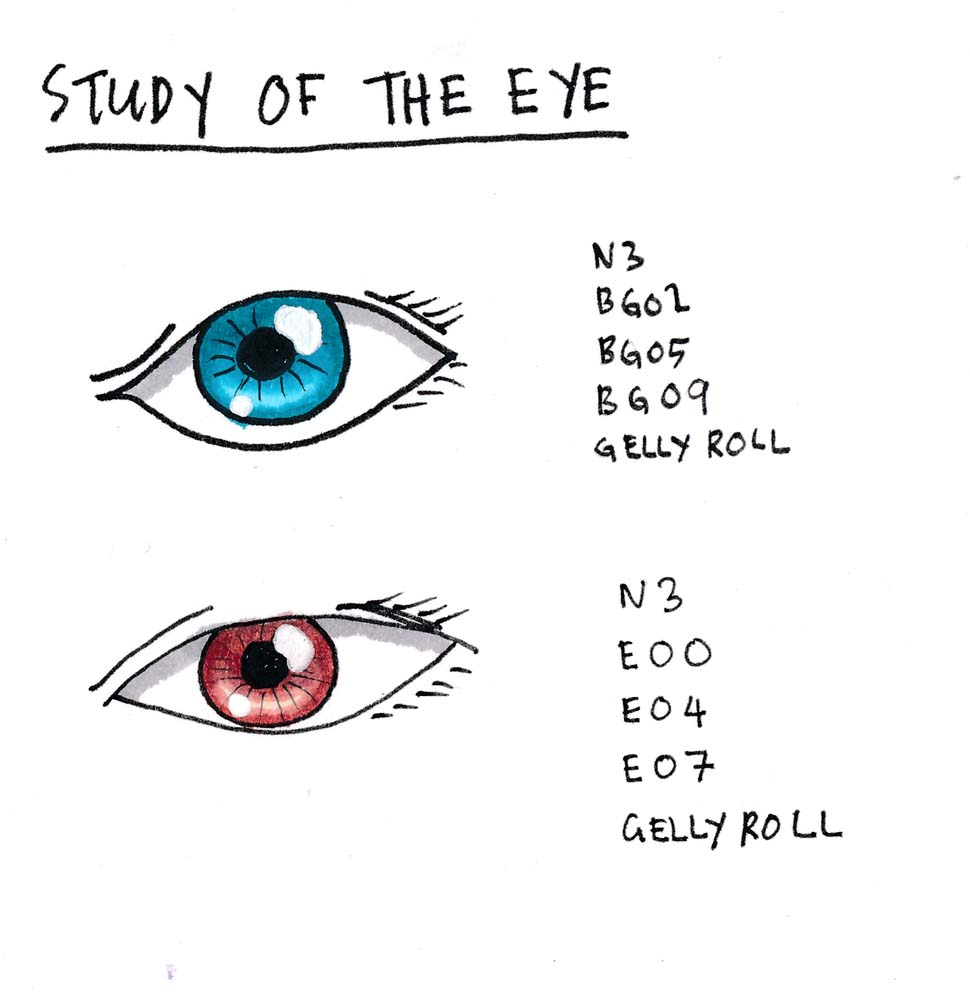 STUDY OF THE EYE
N3
BG02
BG05
BG09
GELLY ROLL
N3
E00
E04
E07
GELLY ROLL